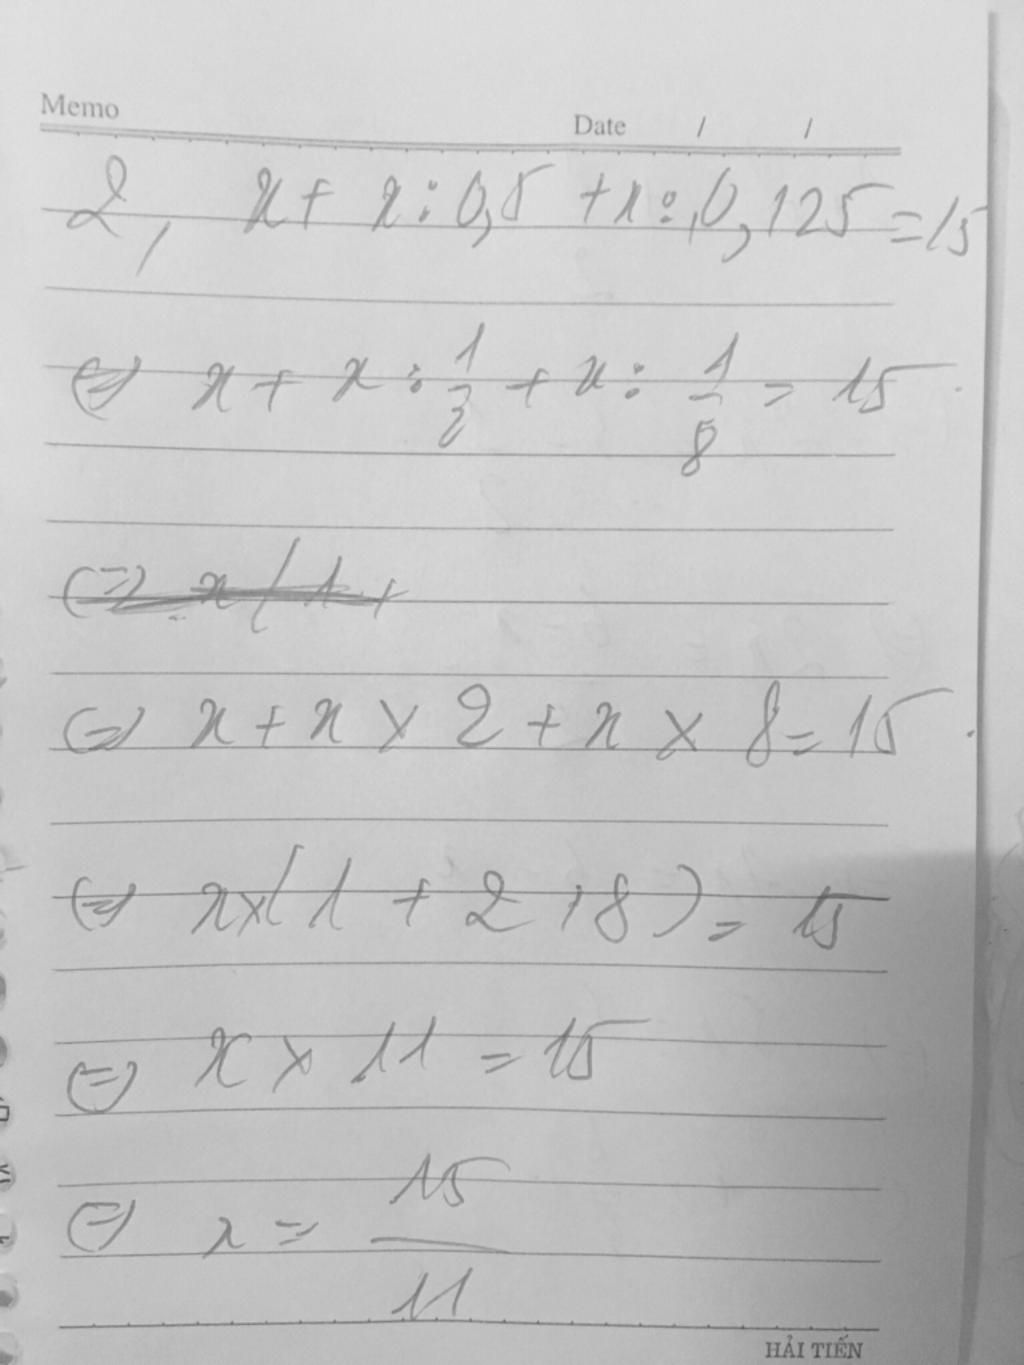 Memo
Date / /
2, x + x : 0,5 + x : 0,125 = 15
⇔ x + x : 1/2 + x : 1/8 = 15
⇔ x ( 1 +
⇔ x + x × 2 + x × 8 = 15
⇔ x × ( 1 + 2 + 8 ) = 15
⇔ x × 11 = 15
⇔ x = 15/11
HẢI TIẾN